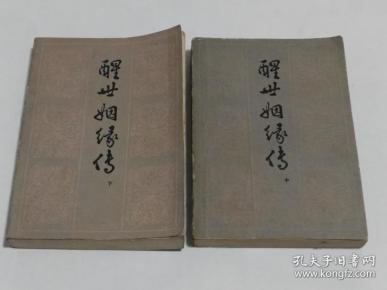 醒世姻缘传
下
醒世姻缘传
中
孔夫子旧书网
www.kongfz.com